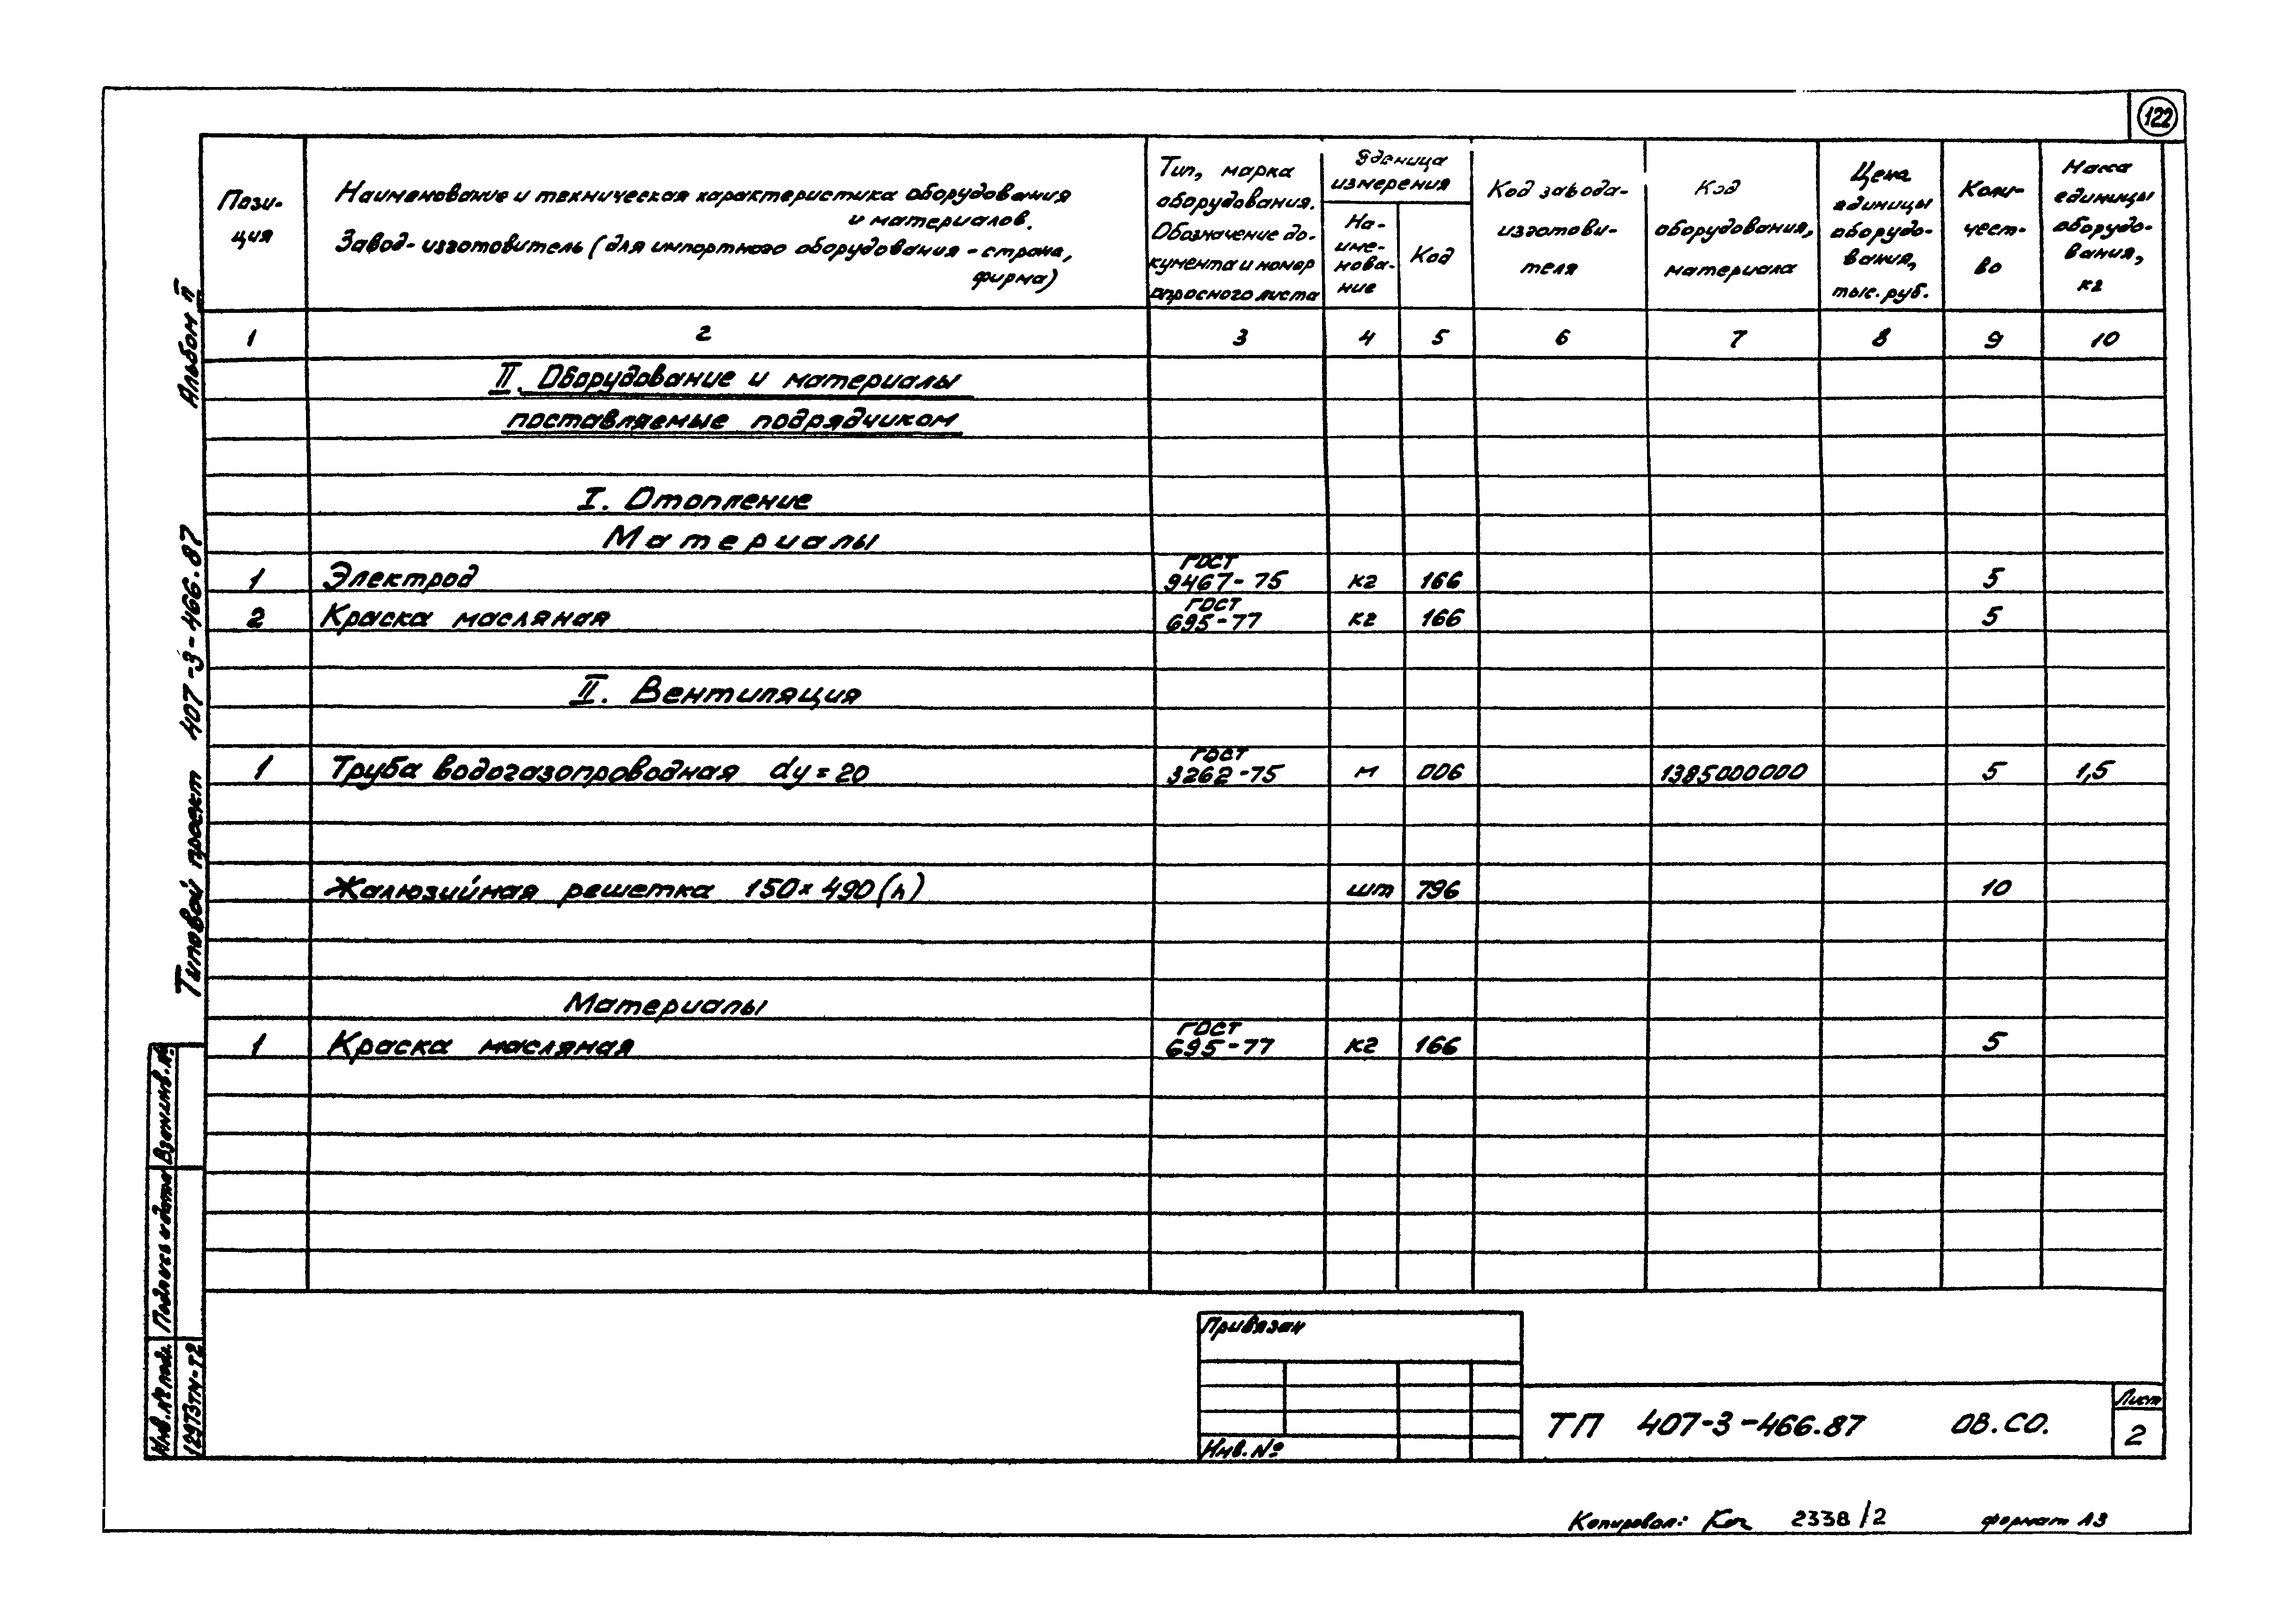 122
Пози-
ция
Наименование и техническая характеристика оборудования
и материалов.
Завод-изготовитель (для импортного оборудования - страна,
фирма)
Тип, марка
оборудования.
Обозначение до-
кумента и номер
опросного листа
Единица
измерения
На-
име-
нова-
ние
Код
Код завода-
изготови-
теля
Код
оборудования,
материала
Цена
единицы
оборудо-
вания,
тыс. руб.
Коли-
чест-
во
Масса
единицы
оборудо-
вания,
кг
1 2 3 4 5 6 7 8 9 10
II. Оборудование и материалы
поставляемые подрядчиком
I. Отопление
Материалы
1 Электрод ГОСТ 9467-75 кг 166 5
2 Краска масляная ГОСТ 695-77 кг 166 5
II. Вентиляция
1 Труба водогазопроводная dy = 20 ГОСТ 3262-75 м 006 1385000000 5 1,5
Жалюзийная решетка 150 х 490 (h) шт 796 10
Материалы
1 Краска масляная ГОСТ 695-77 кг 166 5
Альбом II
Типовой проект 407-3-466.87
Взам.инв.№
Подпись и дата
Инв.№ подл.
12973ТМ-Т2
Привязан
Инв.№
ТП 407-3-466.87 ОВ.СО.
Лист
2
Копировал: 2338/2 формат А3